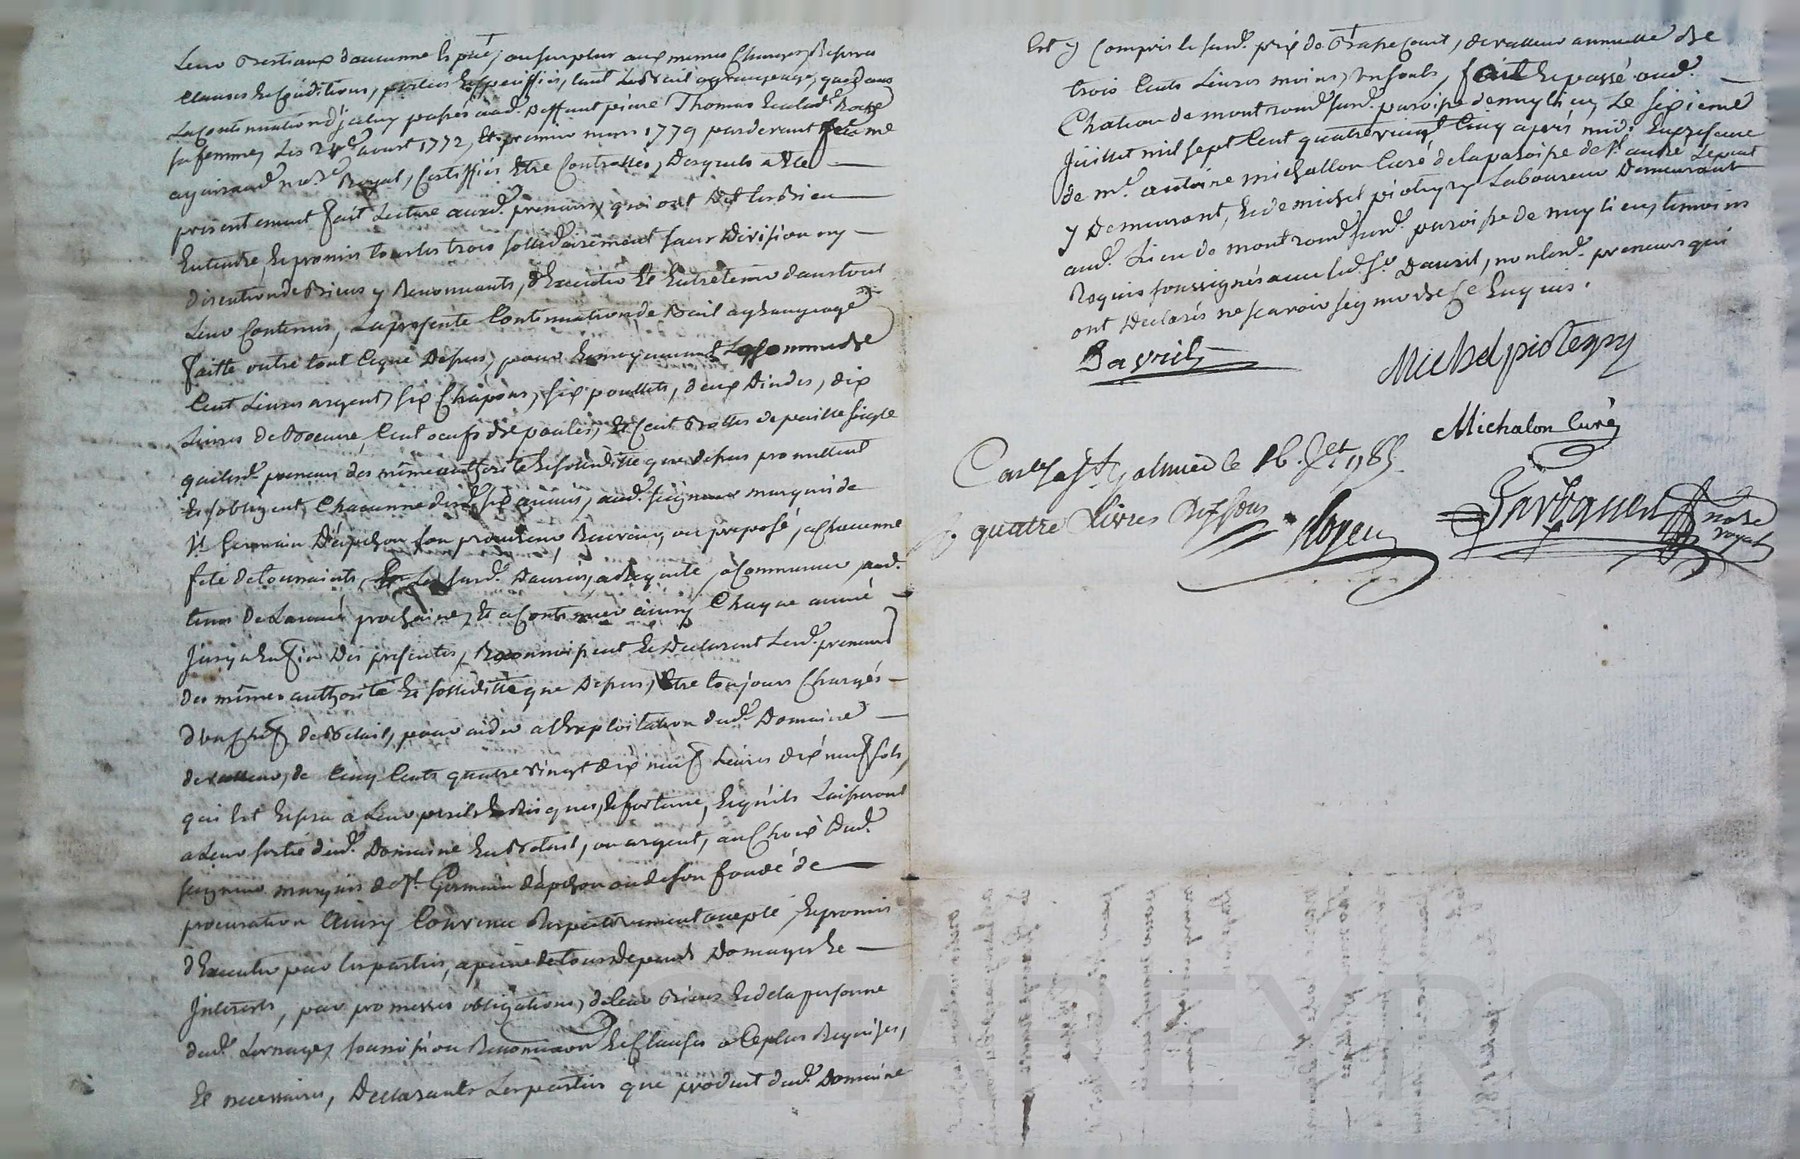 Leurs Bestiaux d'aucunne Espèce, au surplus aux mêmes Charges, Reserves
Clauses Et Conditions, portées Et Speciffiées, tant Le Bail a grangeage, que dans
La Continuation d'jceluy passés aud. Deffunt pierre Thomas Et a lad.
sa femme, Les 24e aoust 1772, Et premier mars 1779 pardevant
no.re Royal, Certiffiés Etre Controllés, Desquels a Eté
présentement fait Lecture auxd. preneurs, qui ont Dit Les Bien
Entendre, Et promis tous les trois sollidairement sans Division ny
Discution de Biens y Renonceants, d'Executer Et Entretenir dans tout
Leur Contenus, La présente Continuation de Bail a grangeage
faitte outre tout ce que Dessus, pour Et moyennant La somme de
Cent Livres argent, six Chapons, six poullets, deux Dindes, dix
Livres de Beurre, Cent oeufs de poules, Et Cent Bottes de paille seigle
que lesd. preneurs des mêmes authorité Et sollidité que dessus promettent
Et s'obligent, Chacunne desd. six années, aud. seigneur marquis de
St. Germain D'apchon son procureur Receveur ou préposé, a Chacunne
fête de toussaints, Led. sr. Davril, a Commencer aud.
tems De L'année prochaine, Et a Continuer ainsy Chaque année
Jusqu'a La fin Des présentes, Reconnoissent Et Declarent Lesd. preneurs
des mêmes authorité Et sollidité que Dessus, Etre toujours Chargés
d'un Chef de Bétail, pour aider a L'Exploitation dud. Domaine
de valleur, de Cinq Cents quatre vingt dix neuf Livres dix neuf sols,
qui Est Et sera a Leurs perils Et Risques, Et fortune, Et qu'ils Laisseront
a Leur sortie dud. Domaine En Bétail, ou argent, au Choix Dud.
seigneur marquis de St. Germain d'apchon ou de son fondé de
procuration Ainsy Convenu Respectivement accepté, Et promis
d'Executer par Les parties, a peine de tous dépends Domages Et
Interests, par promesses obligations, de Leurs Biens Et de La personne
dud. soumission Renonciation Et Clauses a Ce plus Requises,
Et necessaires, Declarants Les parties que produit dud. Domaine
Est y Compris le susd. prix de Courl, de valleur annuelle de
trois Cents Livres moins, Un sols, fait Et passé aud.
Chateau de montrond susd. paroisse de meylieu, Le sixieme
Juillet mil sept Cent quatre vingt Cinq après midi En présence
de mre. antoine michallon Curé de la paroisse de St. andré Le puit
y Demeurant, Et de michel piotegry Laboureur Demeurant
aud. Lieu de montrond susd. paroisse de meylieu, temoins
Requis soussignés avec led. sr. Davril, non lesd. preneurs qui
ont Declarés ne scavoir signer de Ce Enquis.
Davril
Michel piotegry
Michalon Curé
Con.lé a St. Galmier le 16. Jlet 1785
R quatre Livres Dix sous
no.re
royal
HAREYRON